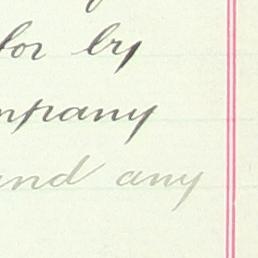 for by
mpany
and any